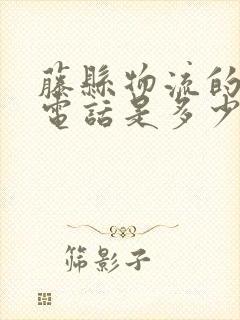 藤縣物流的
電話是多少
筛影子